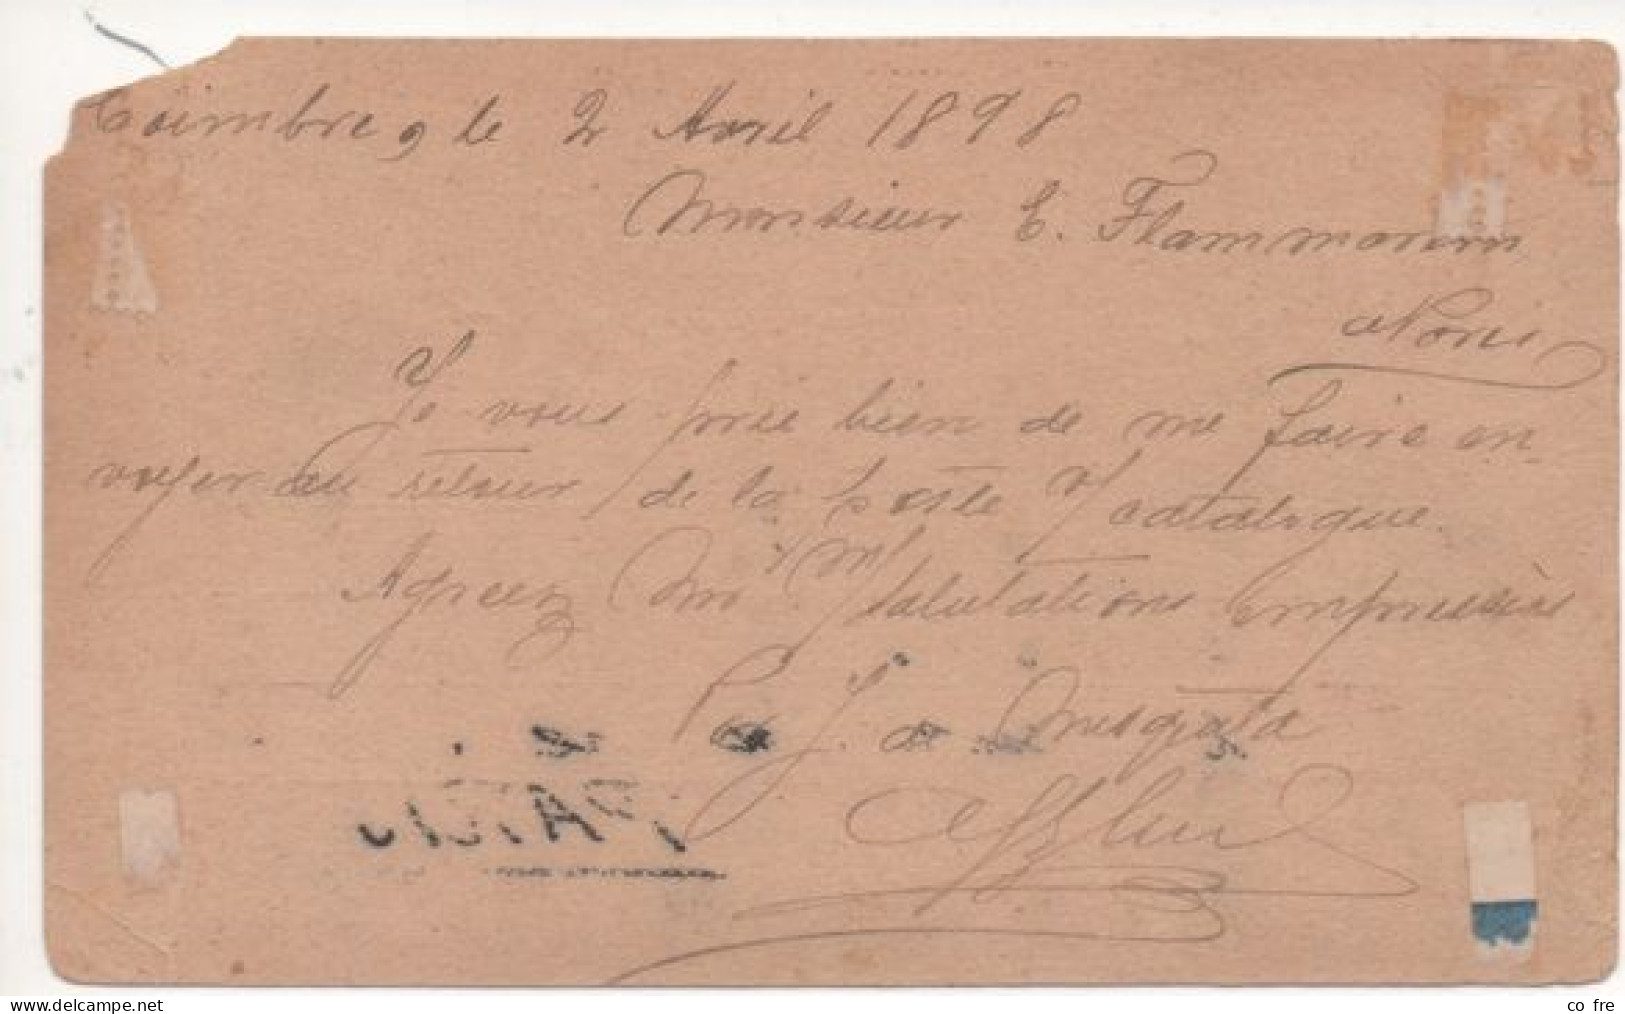 Coimbre, le 2 Avril 1898
Monsieur E. Flammarion
a Paris
Je vous prie bien de me faire en-
voyer au retour de la poste v/ catalogue.
Agréez Mr m/ salutations empressés
J. a Mesquita